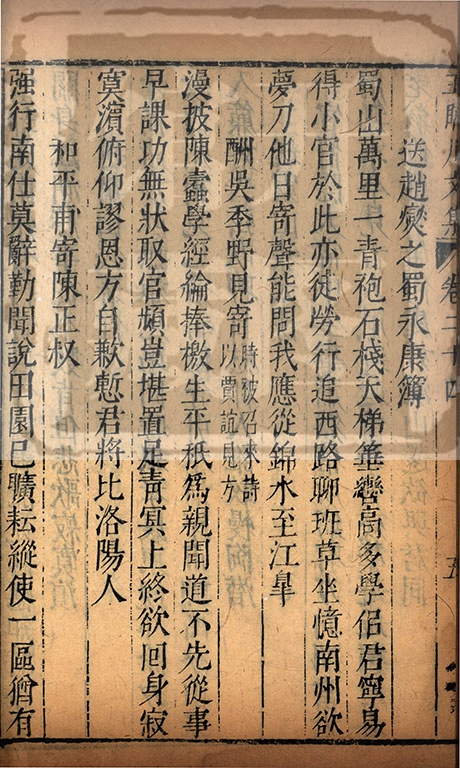 王臨川文集 卷二十四 五
送趙燮之蜀永康簿
蜀山萬里一青袍石棧天梯箠轡高多學侣君寧易
得小官於此亦徒勞行追西路聊班草坐憶南州欲
夢刀他日寄聲能問我應從錦水至江臯
酬吳季野見寄時被召來詩以賈誼見方
漫披陳蠹學經綸捧檄生平秖爲親聞道不先從事
早課功無狀取官頻豈堪置足青冥上終欲囘身寂
寞濱俯仰謬恩方自歉慙君將比洛陽人
和平甫寄陳正叔
强行南仕莫辭勤聞說田園已曠耘縱使一區猶有